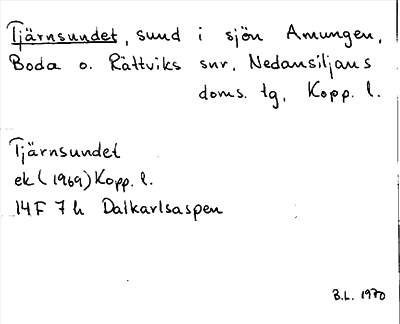 Tjärnsundet, sund i sjön Amungen,
Boda o. Rättviks snr, Nedansiljans
doms. tg, Kopp. l.
Tjärnsundet
ek (1969) Kopp. l.
14F 7h Dalkarlsaspen
B.L. 1970